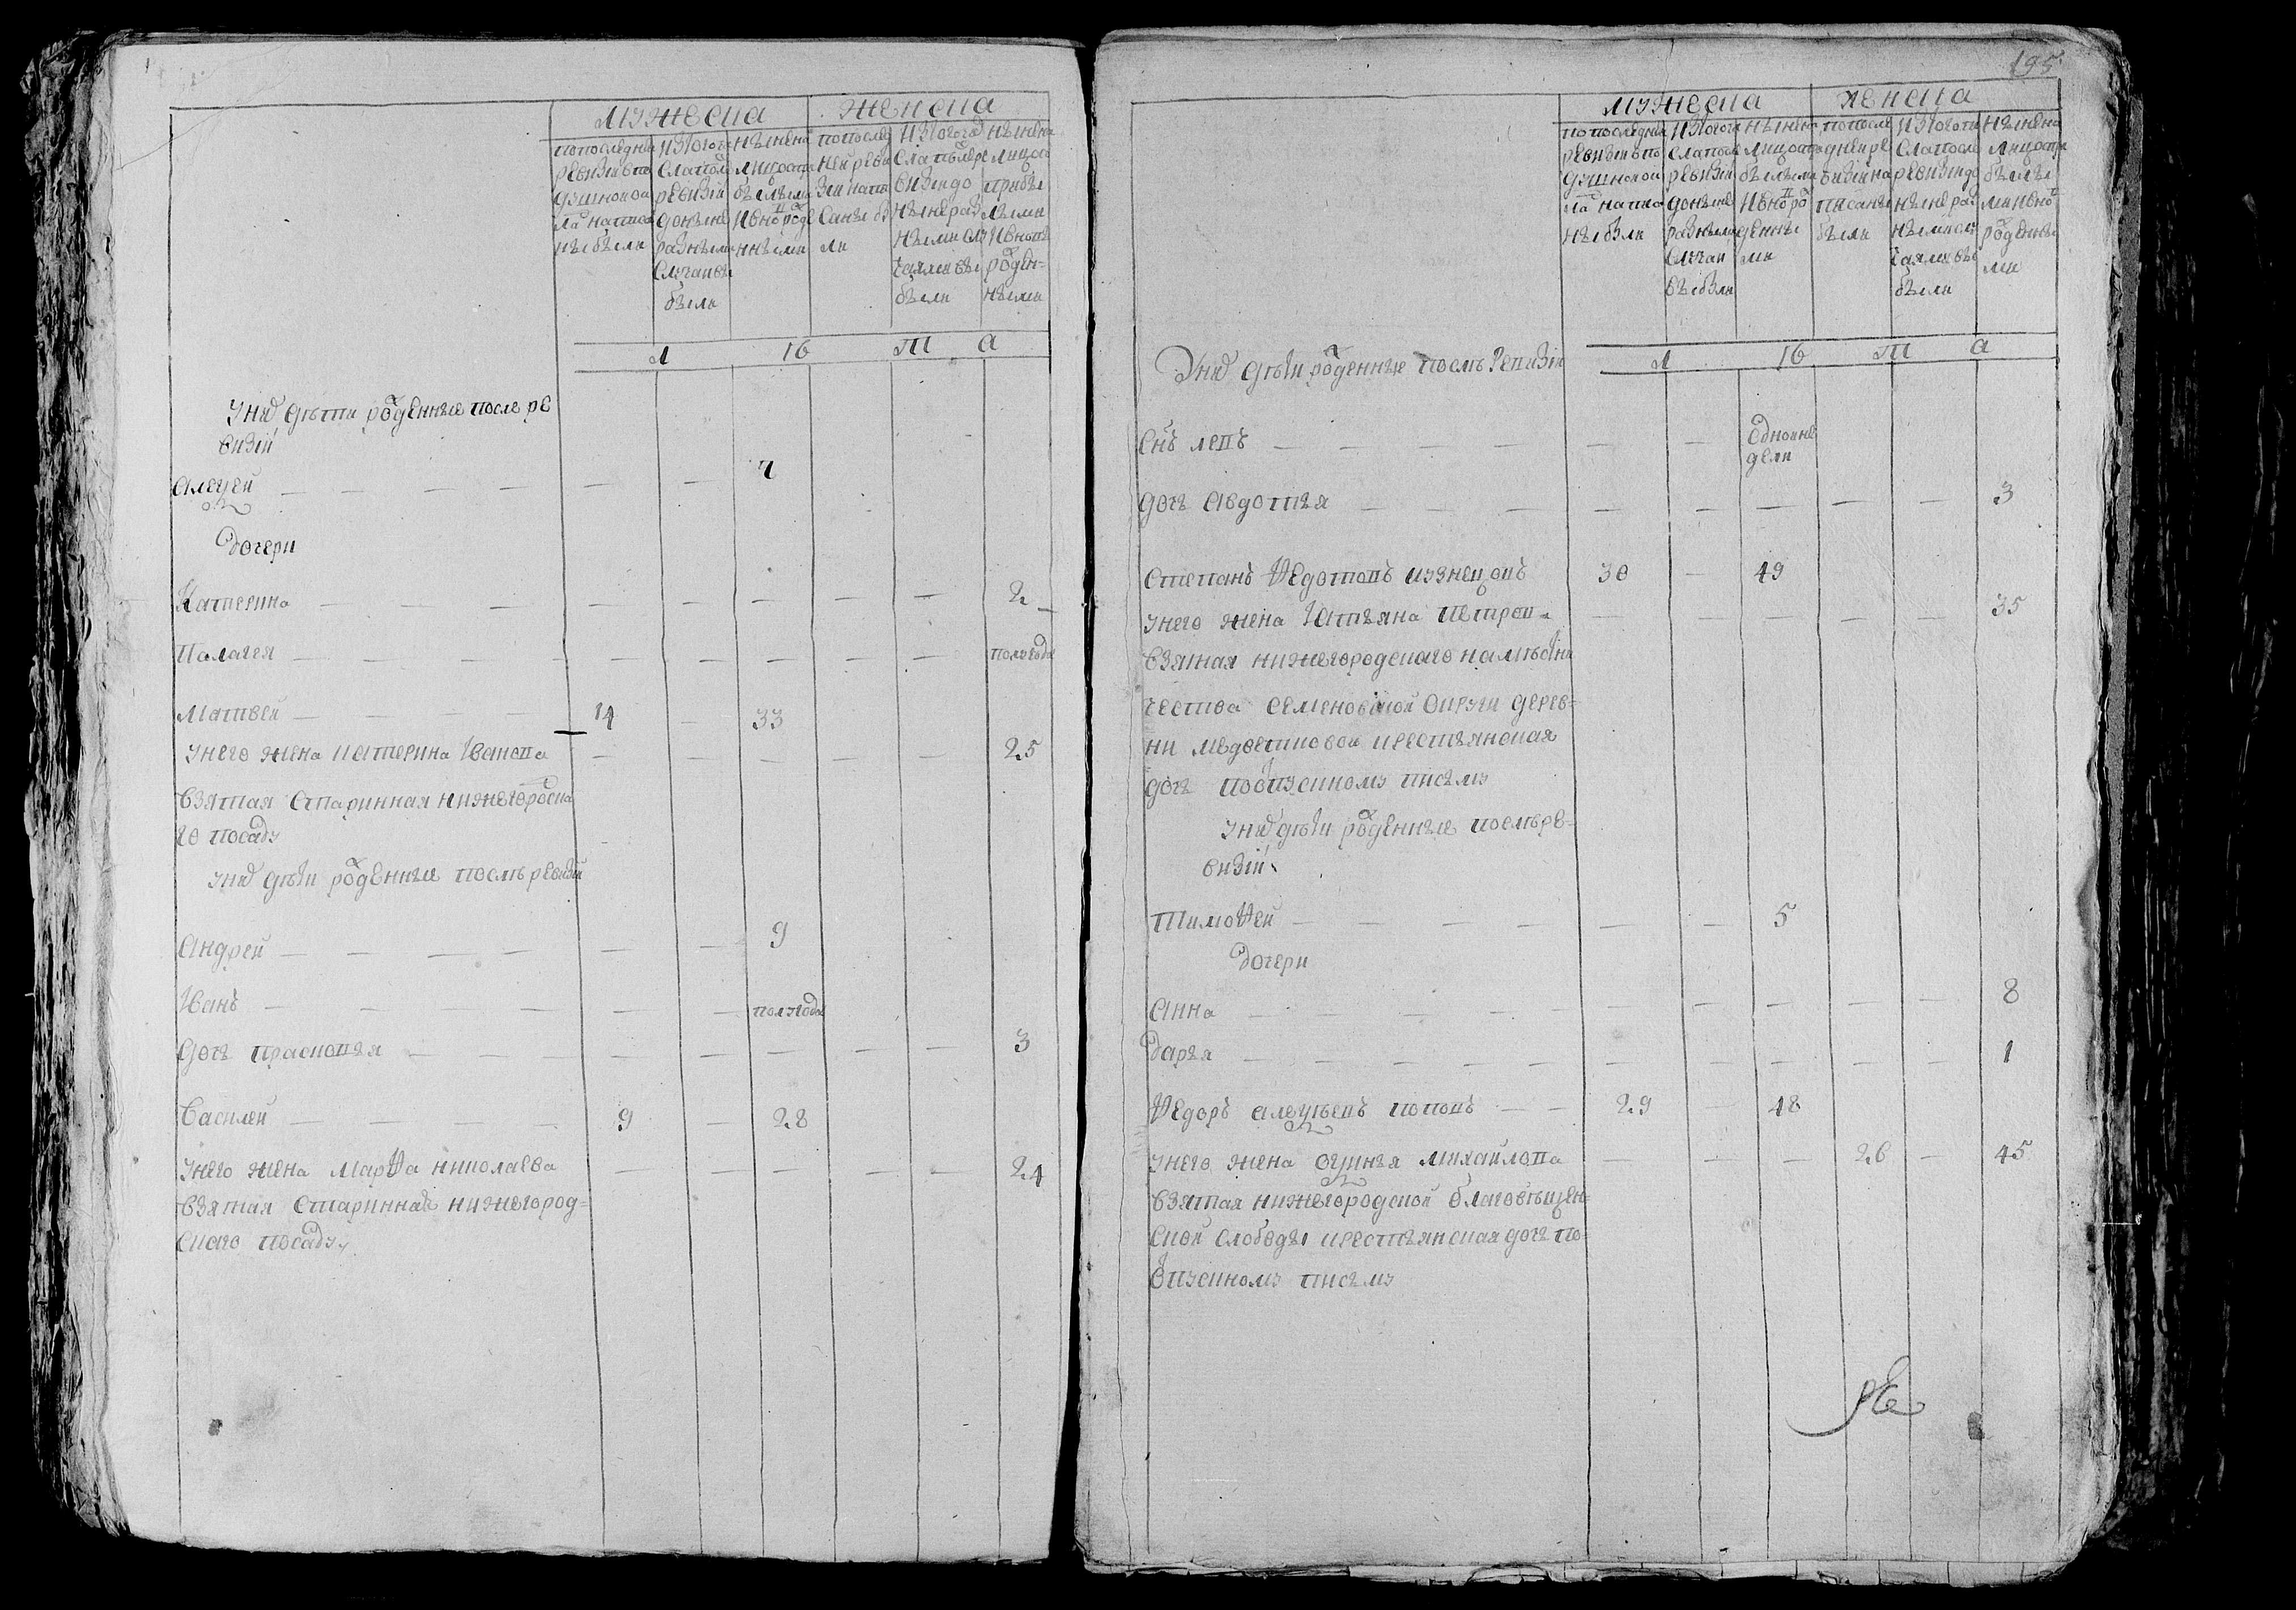 мужеска
женска
по последней ревизии по душкой ла написаны были
из того числа после ревизии до ныне разными случаи выбыли
ныне на лицо с прибылыми и вновь рожденными
по последней ревизии написаны были
из того числа после ревизии до ныне разными случаями выбыли
ныне на лицо с прибылыми и вновь рожденными
л ѣ т а
У них дѣти рожденные после ре
визии
Алексей — 7
Дочери
Катерина — 2
Палагея — полугода
Матвей — 14 — 33
У него жена Катерина Иванова — 25
взятая старинная нижегородска
го посаду
У них дѣти рожденные послѣ ревизии
Андрей — 9
Иванъ — полугода
Дочь Прасковья — 3
Василей — 9 — 28
У него жена Марѳа Николаева — 24
взятая старинная нижегород=
скаго посаду
195
мужеска
женска
по последней ревизии по душкой ла написаны были
из того числа после ревизии до ныне разными случаи выбыли
ныне на лицо с прибылыми и вновь рожденными
по последней ревизии написаны были
из того числа после ревизии до ныне разными случаями выбыли
ныне на лицо с прибылыми и вновь рожденными
л ѣ т а
У них дѣти рожденные послѣ ревизии
Снъ левъ — одной не
дели
дочь Авдотья — 3
Степанъ Ѳедотовъ кузнецовъ 30 — 49
У него жена Татьяна Петров= — 35
взятая нижегородскаго намѣстни
чества семеновской округи дерев=
ни медветковой крестьянская
дочь по отпускному письму
У них дѣти рожденные послѣ ре=
визии
Тимоѳей — 5
Дочери
Анна — 8
Дарья — 1
Ѳедоръ Алексѣевъ поповъ — 29 — 48
У него жена оксинья михайлова — 26 — 45
взятая нижегородской благовѣщен=
ской слободы крестьянская дочь по
отпускному письму